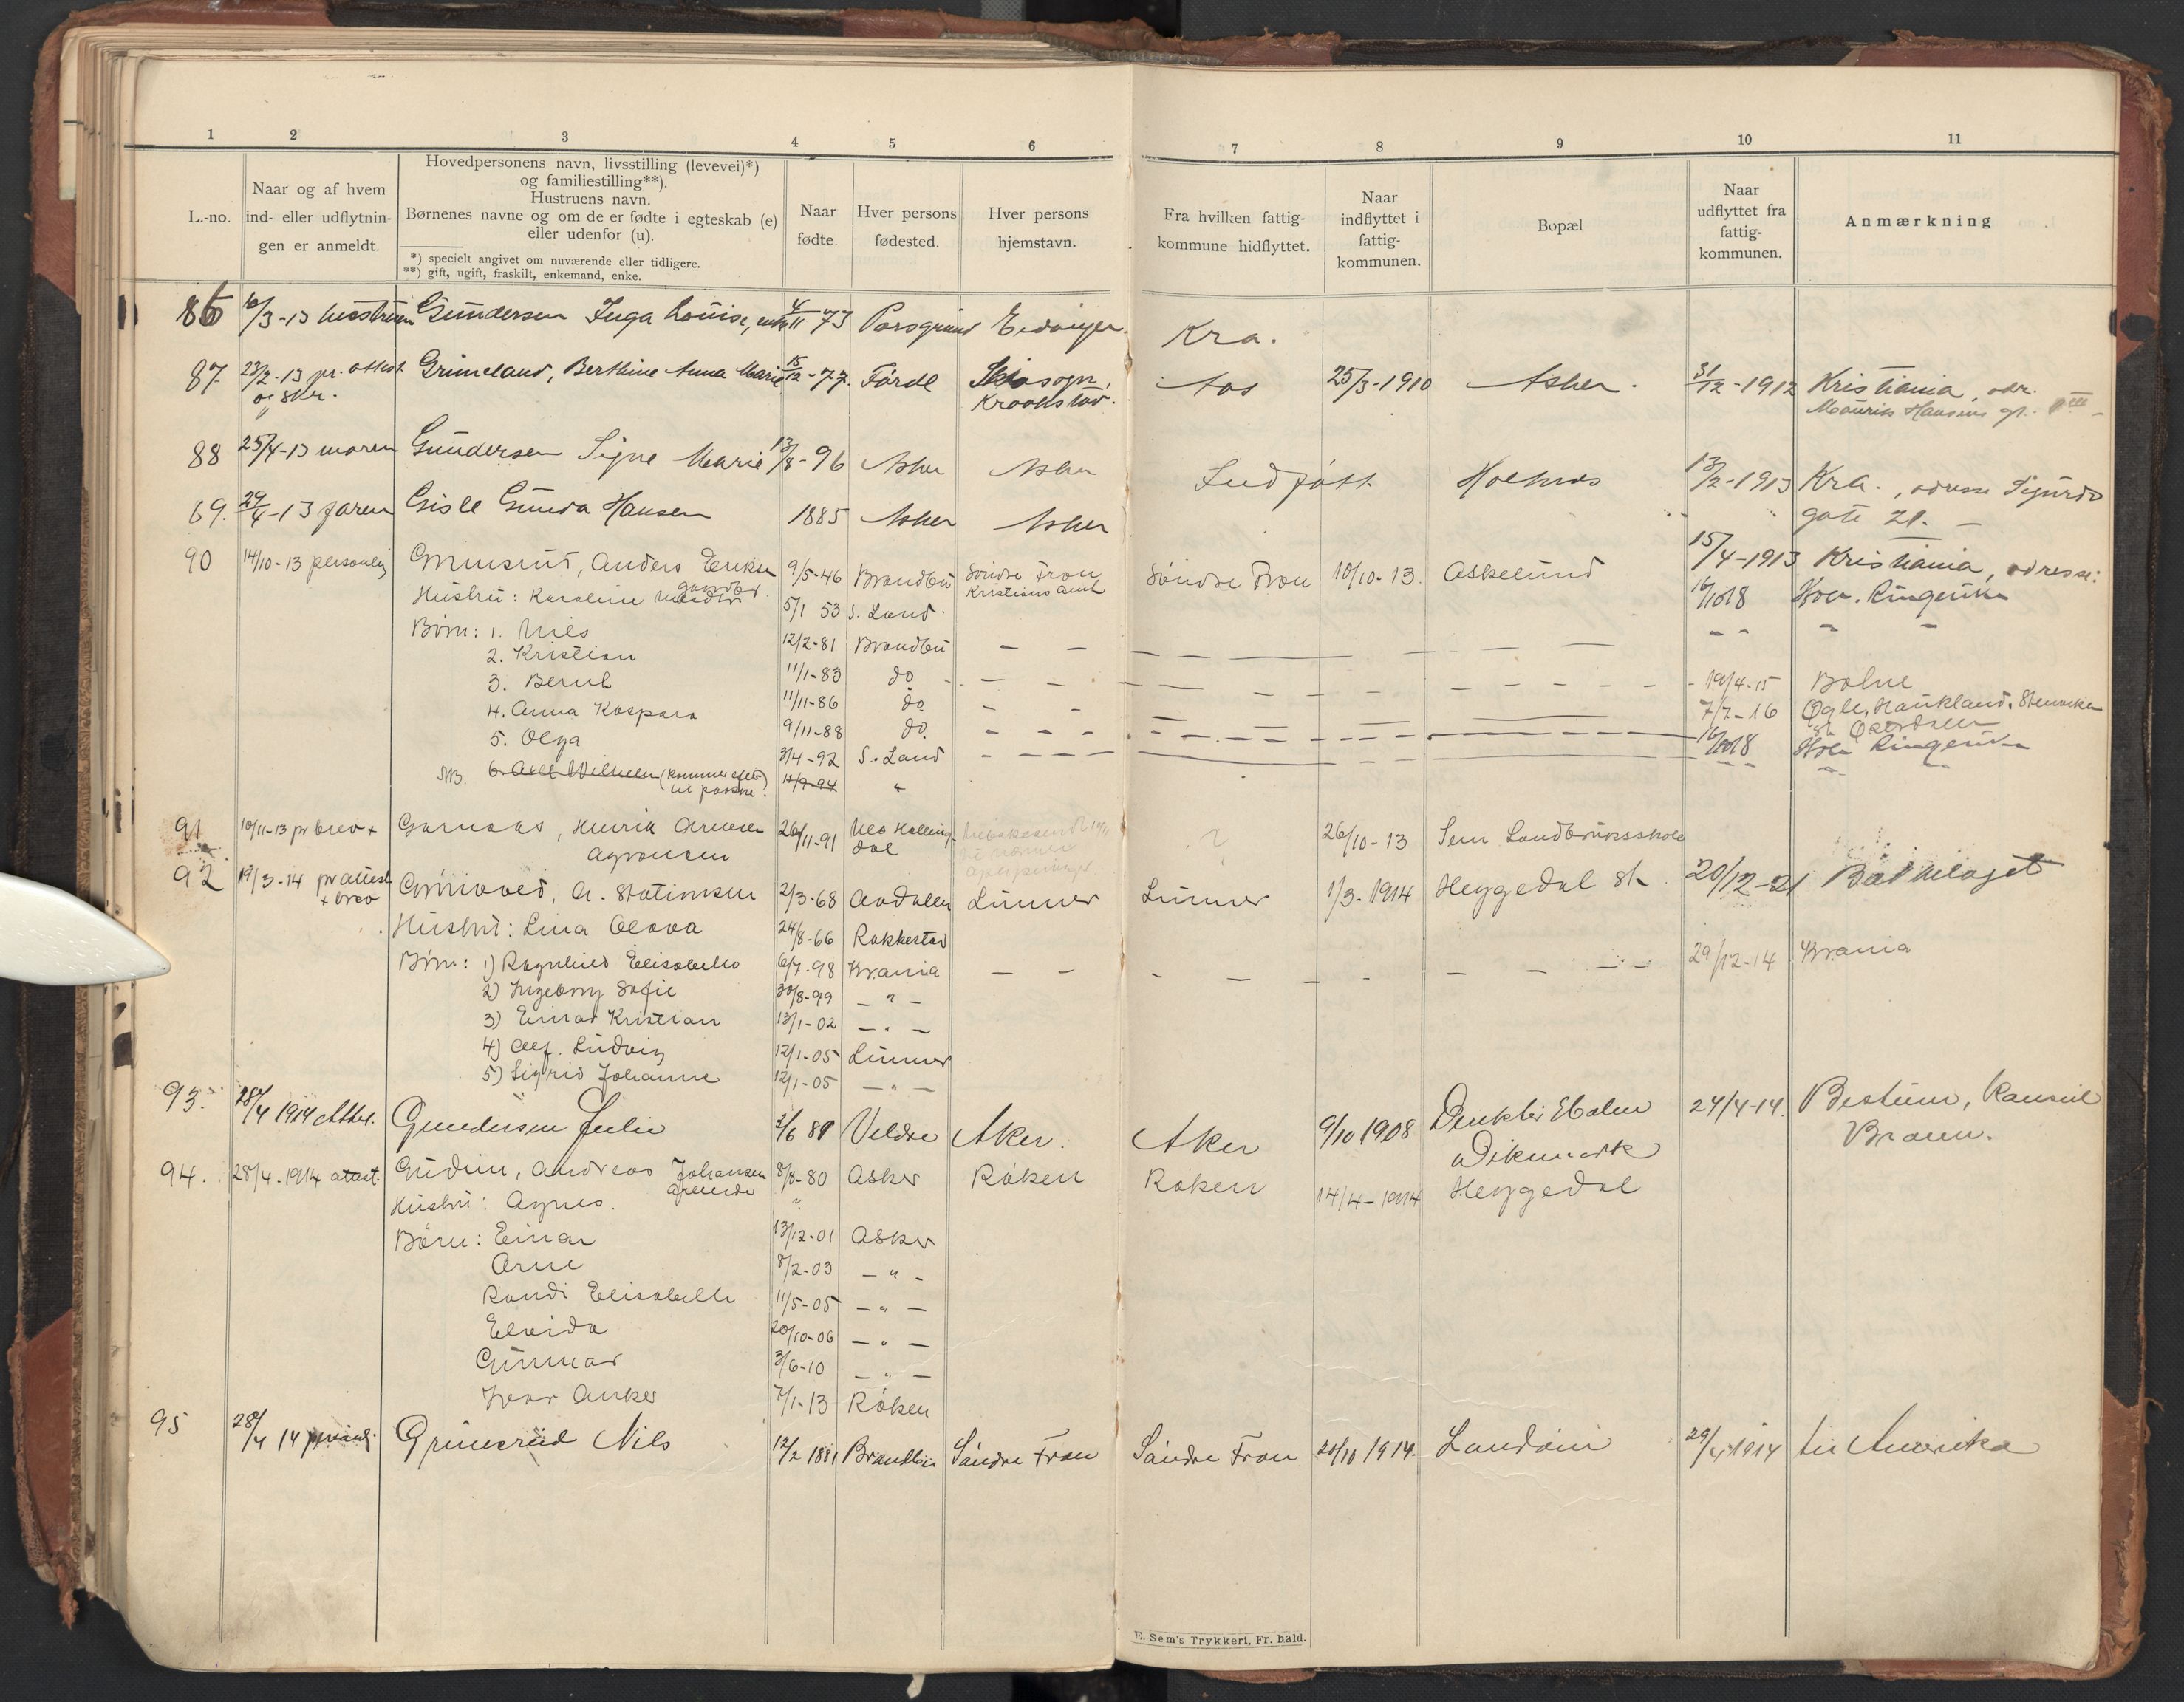 1 2 3 4 5 6 7 8 9 10 11
L.-no.
Naar og af hvem
ind- eller udflytnin-
gen er anmeldt.
Hovedpersonens navn, livsstilling (levevei)*)
og familiestilling**).
Hustruens navn.
Børnenes navne og om de er fødte i egteskab (e)
eller udenfor (u).
*) specielt angivet om nuværende eller tidligere.
**) gift, ugift, fraskilt, enkemand, enke.
Naar
fødte.
Hver persons
fødested.
Hver persons
hjemstavn.
Fra hvilken fattig-
kommune hidflyttet.
Naar
indflyttet i
fattig-
kommunen.
Bopæl
Naar
udflyttet fra
fattig-
kommunen.
Anmærkning
86 /3-13 hustruen Gundersen Inga Louise, 4/11 73 Porsgrund Eidanger. Kra.
87. 23/2-13 pr. attest Grimeland, Berthine Anna Marie 15/12-77. Førde Skisogn, Aas 25/3-1910 Asker. 31/12-1912 Kristiania, adr.
og skr. Kraakstad. Mauritz Hansens gt.
88 25/4-13 moren Gundersen Signe Marie 13/8-96 Asker Asker Indfødt Holmos 13/2-1913 Kra., adresse Sigurds
gate 21.
69. 29/4-13 faren Gisle Gunda Hansen 1885 Asker Asker 15/4-1913 Kristiania, adresse:
90 14/10-13 personlig Grinsrud, Anders Eriksen 9/5-46 Brandbu Søndre Fron Søndre Fron 10/10-13. Askelund 16/10 18 Hole. Ringerike
gaardbr. Kristians Amt
Hustru: Karoline 5/1 53 S. Land.
Børn: 1. Nils 12/2-81 Brandbu
2. Kristian 11/1-83 do
3. Bernt 11/11-86 do 19/4-15
4. Anna Kaspara 9/11-88 do. 7/7-16 Haukland,
5. Olga 3/4-92 S. Land 16/10 18 Hole Ringerike
NB. 6. Axel Wilhelm (kommer efter 11/9-94 "
til paaske).
91 10/11-13 pr brev + Garnaas, Henrik Arnesen 26/11-91 Nes Halling- ? 26/10-13 Sem Landbruksskole
Agronom dal
92 19/3-14 pr attest Grønvold, A. Stationsm 2/3-68 Aadalen Lunner Lunner 1/3-1914 Heggedal St. 20/12-21 Bækkelaget
+ brev
Hustru: Lina Olava 24/8-66 Rakkestad
Børn: 1) Ragnhild Elisabeth 6/7-98 Krania 29/12-14 Krania
2) Ingeborg Sofie 30/8-99 — " —
3) Einar Kristian 13/1-02 — " —
4) Alf. Ludvig 12/1-05 Lunner
5) Sigrid Johanne 12/1-05 — " —
93. 28/4 1914 Attest. Gundersen Julie 2/6 81 Veldre Aker. Aker 9/10 1908 Direktør Holm 24/4-14. Bestum, Konsul
Dikemark Braun.
94. 28/4-1914 attest. Gudim, Andreas Johansen 8/8-80 Asker Røken Røken 14/4-1914 Heggedal
Hustru: Agnes. "
Børn: Einar 13/12-01 Asker
Arne 8/2-03 — " —
Randi Elisabeth 11/5-05 — " —
Elvida 20/10-06 — " —
Gunnar 3/6-10 — " —
Ivar Anker 7/1-13 Røken
95 28/4 14 Grinsrud Nils 12/2 1881 Brandbu Søndre Fron Søndre Fron 20/10 1914. Landøin 29/4 1914 til Amerika
E. Sem's Trykkeri, Fr. hald.